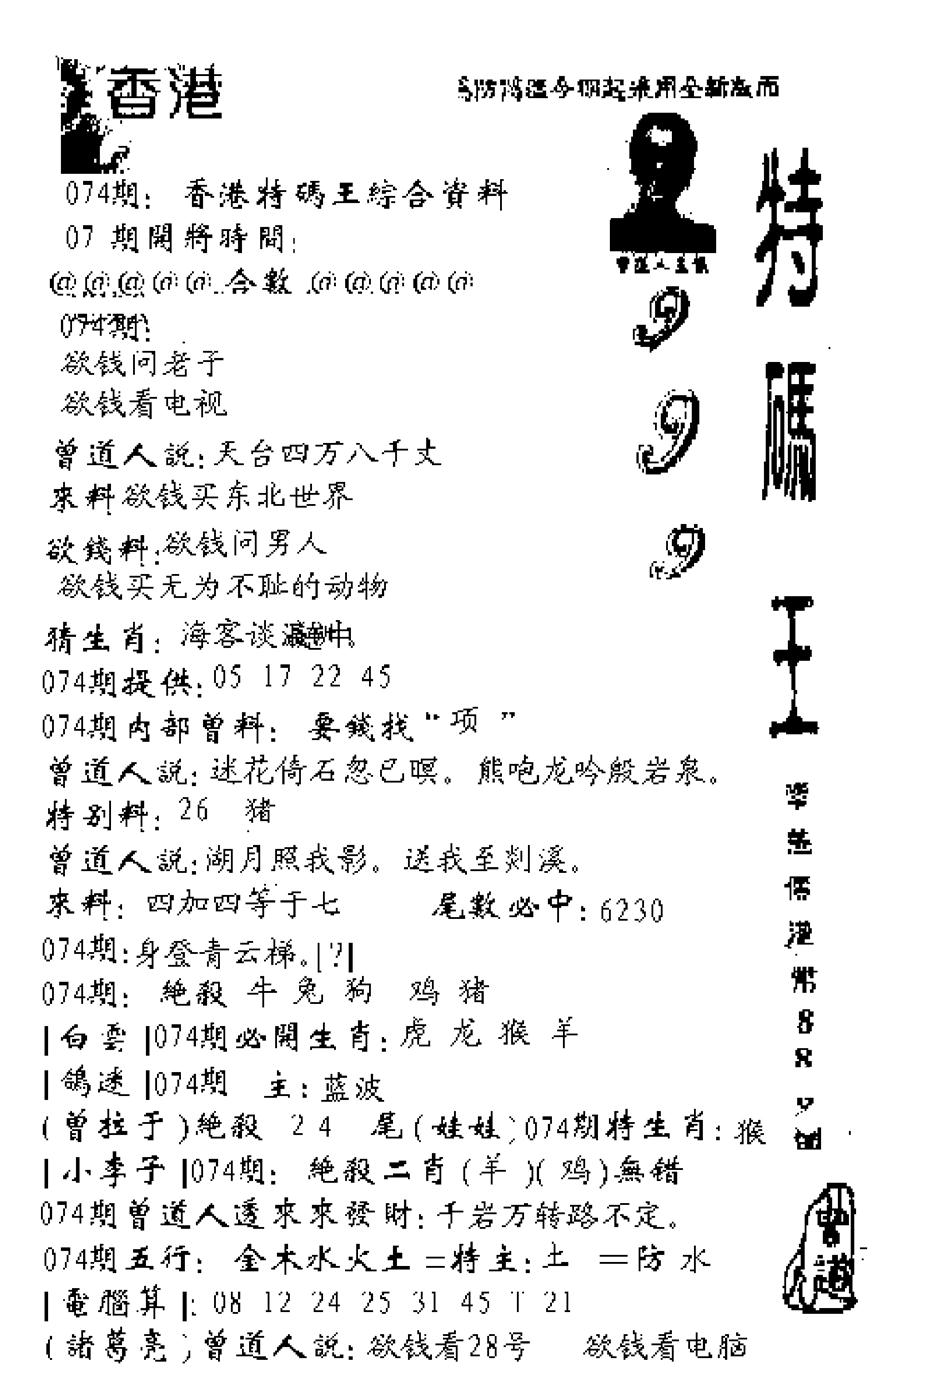 香港
防 今 起采用全新版面
074期: 香港特碼王綜合資料
07 期開將時間:
@@@@@ 合數 @@@@@
074期:
欲钱问老子
欲钱看电视
曾道人説:天台四万八千丈
來料欲钱买东北世界
欲錢料:欲钱问男人
欲钱买无为不耻的动物
猜生肖: 海客谈瀛
074期提供:05 17 22 45
074期内部曾料: 要錢找“项 ”
曾道人説:迷花倚石忽已暝。熊咆龙吟殷岩泉。
特别料: 26 猪
曾道人説:湖月照我影。送我至剡溪。
來料: 四加四等于七 尾數必中: 6230
074期:身登青云梯。|?|
074期: 絶殺 牛 兔 狗 鸡 猪
|白雲|074期必開生肖:虎 龙 猴 羊
|鴿迷|074期 主:蓝波
(曾拉于)絶殺 24 尾(娃娃)074期特生肖:猴
|小李子|074期: 絶殺二肖(羊)(鸡)無错
074期曾道人透來來發財:千岩万转路不定。
074期五行: 金木水火土=特主:土 =防 水
|電腦算|: 08 12 24 25 31 45 T 21
(諸葛亮)曾道人説:欲钱看28号 欲钱看电脑
曾道人主
9
9
9
特
碼
王
港
幣
8
8
曾道